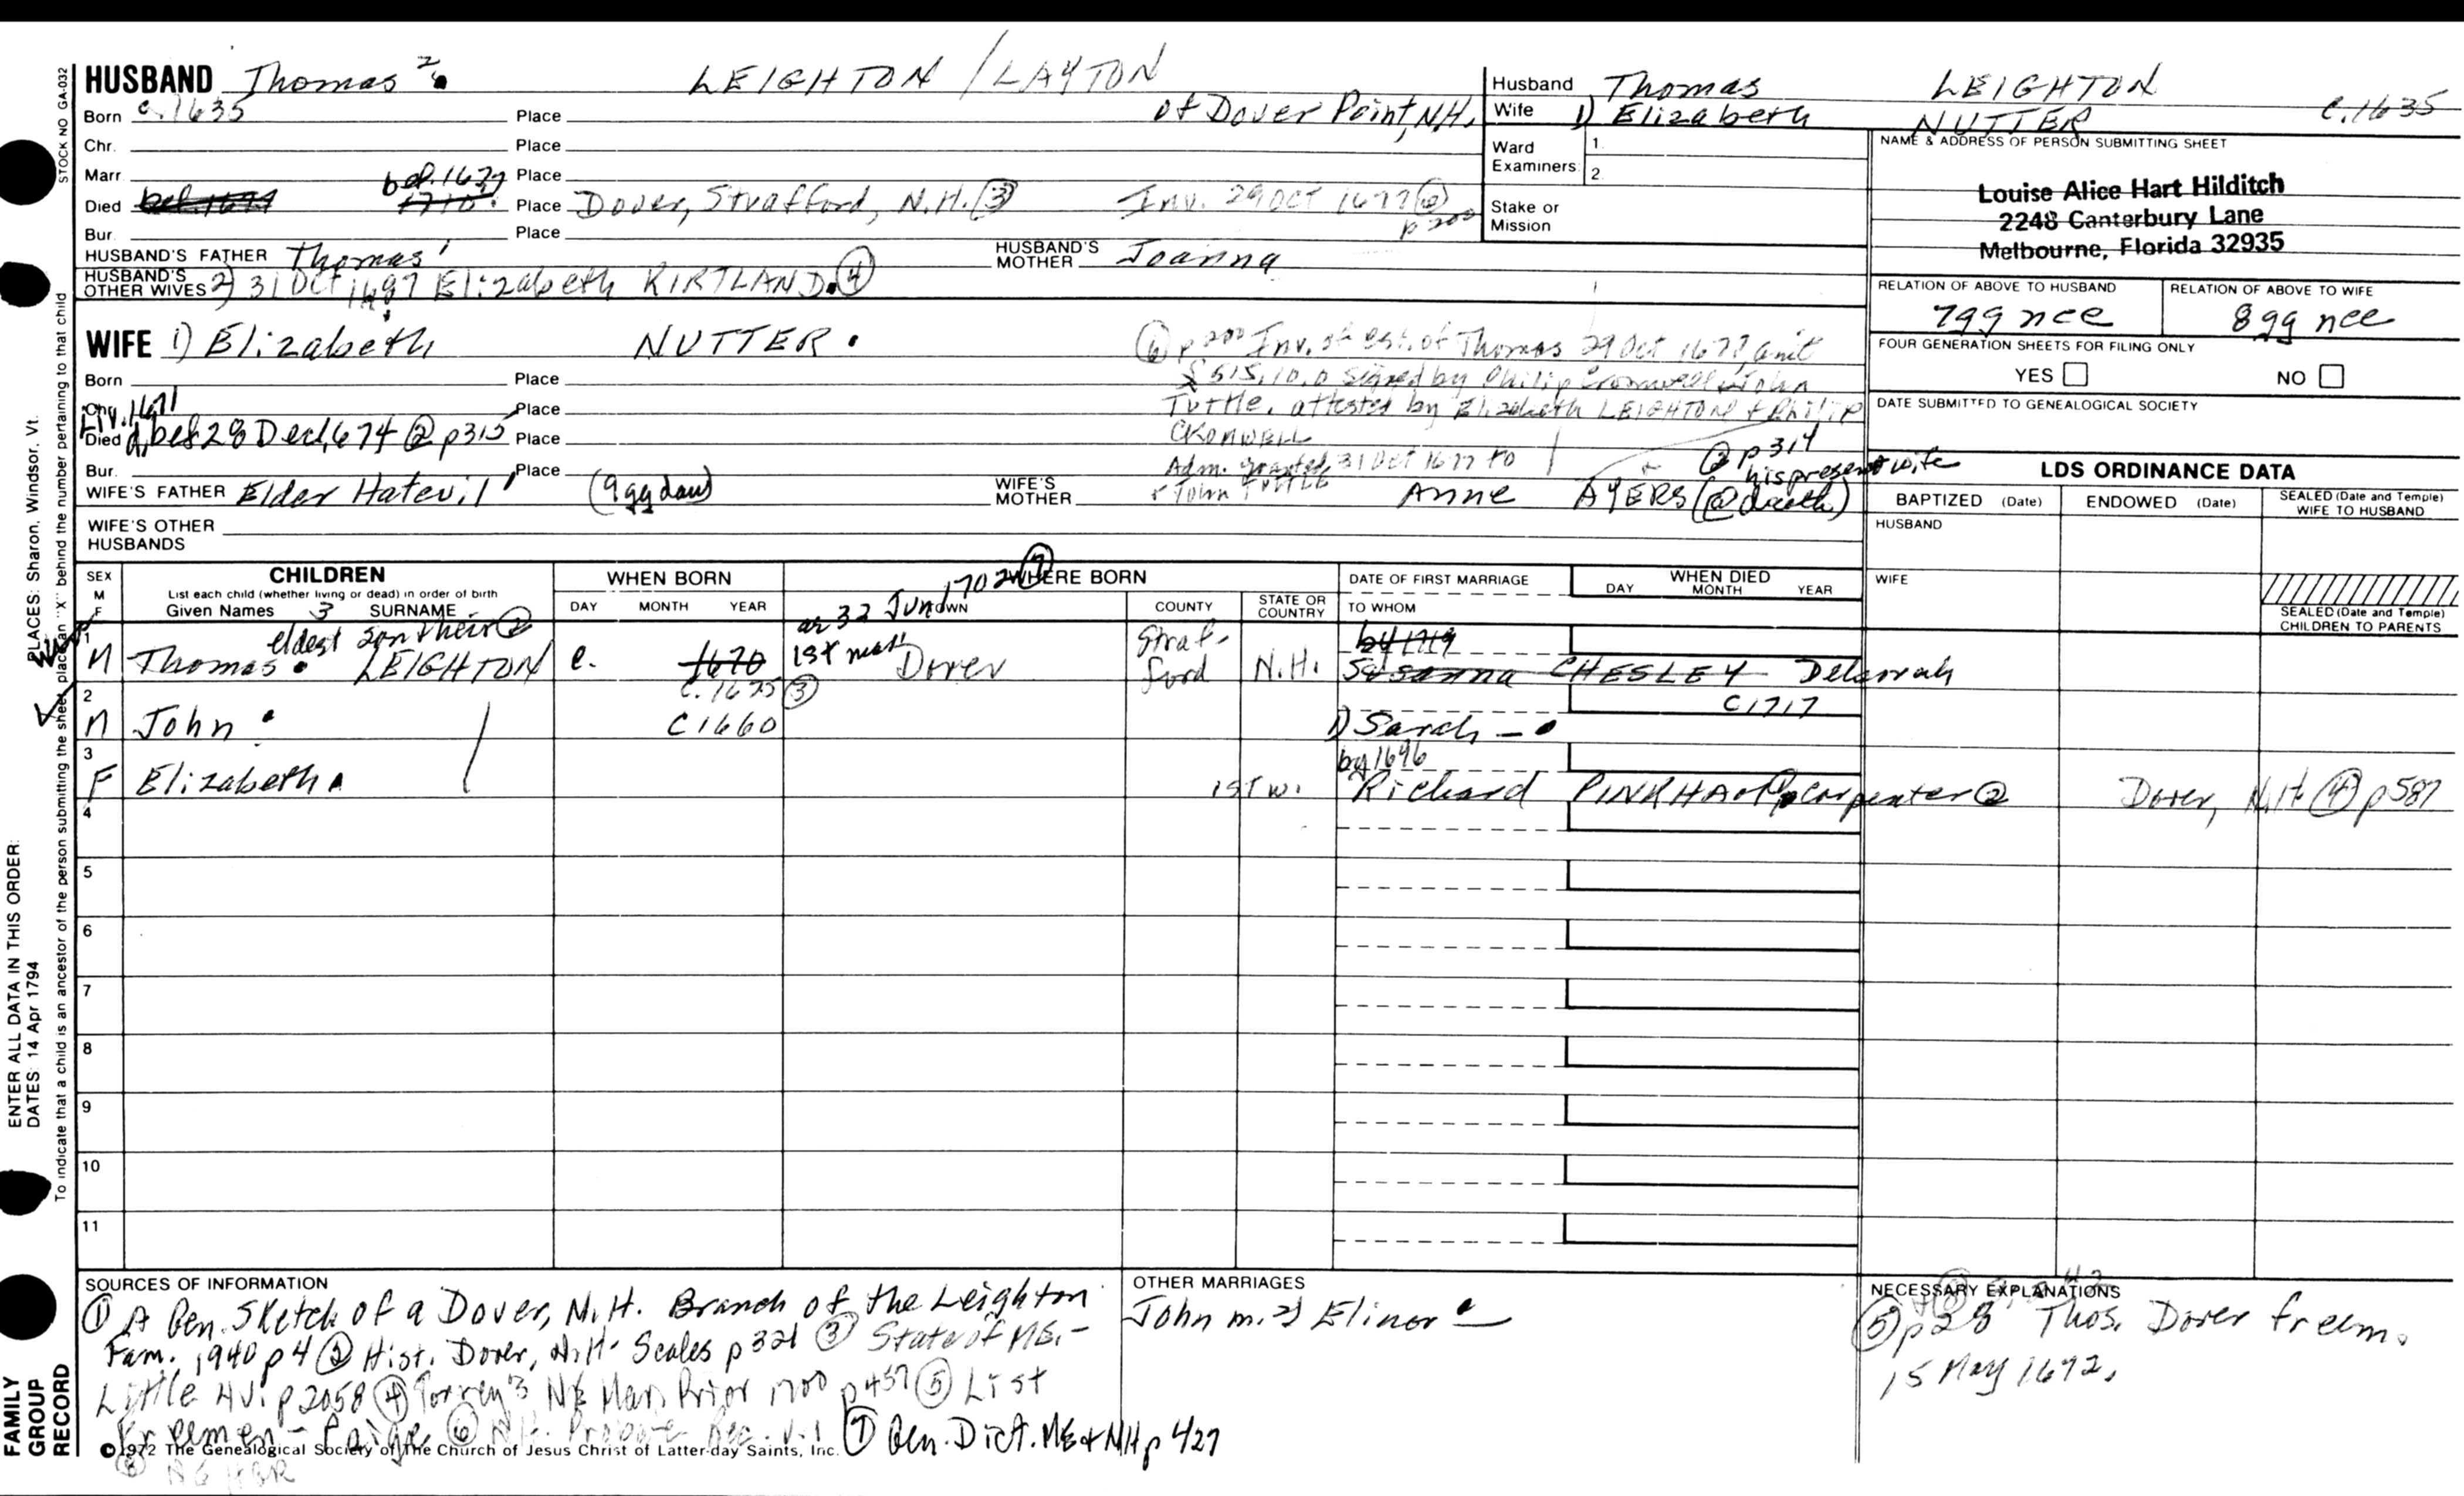 HUSBAND Thomas 2 LEIGHTON / LAYTON
Born c. 1635 Place of Dover Point, N.H.
Chr. Place
Marr. Place
Died bef. 1677 1710 Place Dover, Strafford, N.H. (3) Inv. 29 Oct 1677 (6) p 200
Bur. Place
HUSBAND'S FATHER Thomas 1 HUSBAND'S MOTHER Joanna
HUSBAND'S OTHER WIVES 2) 31 Oct Elizabeth KIRTLAND. (4)
WIFE 1) Elizabeth NUTTER.
Born Place
Chr. Liv. 1671 Place
Died bef 28 Dec 1674 (2) p315 Place
Bur. Place
WIFE'S FATHER Elder Hatevil 1 (9gg dau) WIFE'S MOTHER Anne AYERS (@ death)
WIFE'S OTHER HUSBANDS
(6) p 200 Inv. of est. of Thomas 29 Oct 1677 amt
£ 515.10.0 signed by Philip Cromwell & John
Tuttle, attested by Elizabeth LEIGHTON & Philip
CROMWELL
Adm. granted 31 Oct 1677 to
& John TUTTLE
(2) p 314
his present wife
Husband Thomas LEIGHTON
Wife 1) Elizabeth NUTTER c. 1635
Ward Examiners: 1.
2.
Stake or Mission
NAME & ADDRESS OF PERSON SUBMITTING SHEET
Louise Alice Hart Hilditch
2248 Canterbury Lane
Melbourne, Florida 32935
RELATION OF ABOVE TO HUSBAND RELATION OF ABOVE TO WIFE
7gg nce 8gg nce
FOUR GENERATION SHEETS FOR FILING ONLY
YES NO
DATE SUBMITTED TO GENEALOGICAL SOCIETY
LDS ORDINANCE DATA
BAPTIZED (Date) ENDOWED (Date) SEALED (Date and Temple) WIFE TO HUSBAND
HUSBAND
WIFE
SEALED (Date and Temple) CHILDREN TO PARENTS
SEX M F CHILDREN WHEN BORN WHERE BORN DATE OF FIRST MARRIAGE WHEN DIED
List each child (whether living or dead) in order of birth
Given Names 3 SURNAME DAY MONTH YEAR TOWN COUNTY STATE OR COUNTRY TO WHOM DAY MONTH YEAR
ae 32 Jun 1702 (7)
1 eldest son & heir (2) 1st mar b4 1719
M Thomas. LEIGHTON c. 1670 Dover Strafford N.H. Susanna CHESLEY Deborah
c. 1675 (3)
2 c 1717
M John. c 1660 1) Sarah —
3 by 1696
F Elizabeth 1st w. Richard PINKHAM carpenter (2) Dover, N.H. (4) p 587
4
5
6
7
8
9
10
11
SOURCES OF INFORMATION
(1) A Gen. Sketch of a Dover, N.H. Branch of the Leighton
Fam. 1940 p 4 (2) Hist. Dover, N.H. Scales p 321 (3) State of ME. -
Little 4 v. p 2058 (4) Torrey's NE Mar. Prior 1700 p 457 (5) List
Freemen - Paige (6) N.H. Probate Rec. v. 1 (7) Gen. Dict. ME & NH p 427
(8) NEHGR
OTHER MARRIAGES
John m. 2) Elinor —
NECESSARY EXPLANATIONS
(5) p 28 Thos. Dover freem.
15 May 1672.
©1972 The Genealogical Society of The Church of Jesus Christ of Latter-day Saints, Inc.
STOCK NO GA-032
PLACES: Sharon, Windsor, Vt.
ENTER ALL DATA IN THIS ORDER:
DATES: 14 Apr 1794
To indicate that a child is an ancestor of the person submitting the sheet, place an "X" behind the number pertaining to that child
FAMILY
GROUP
RECORD